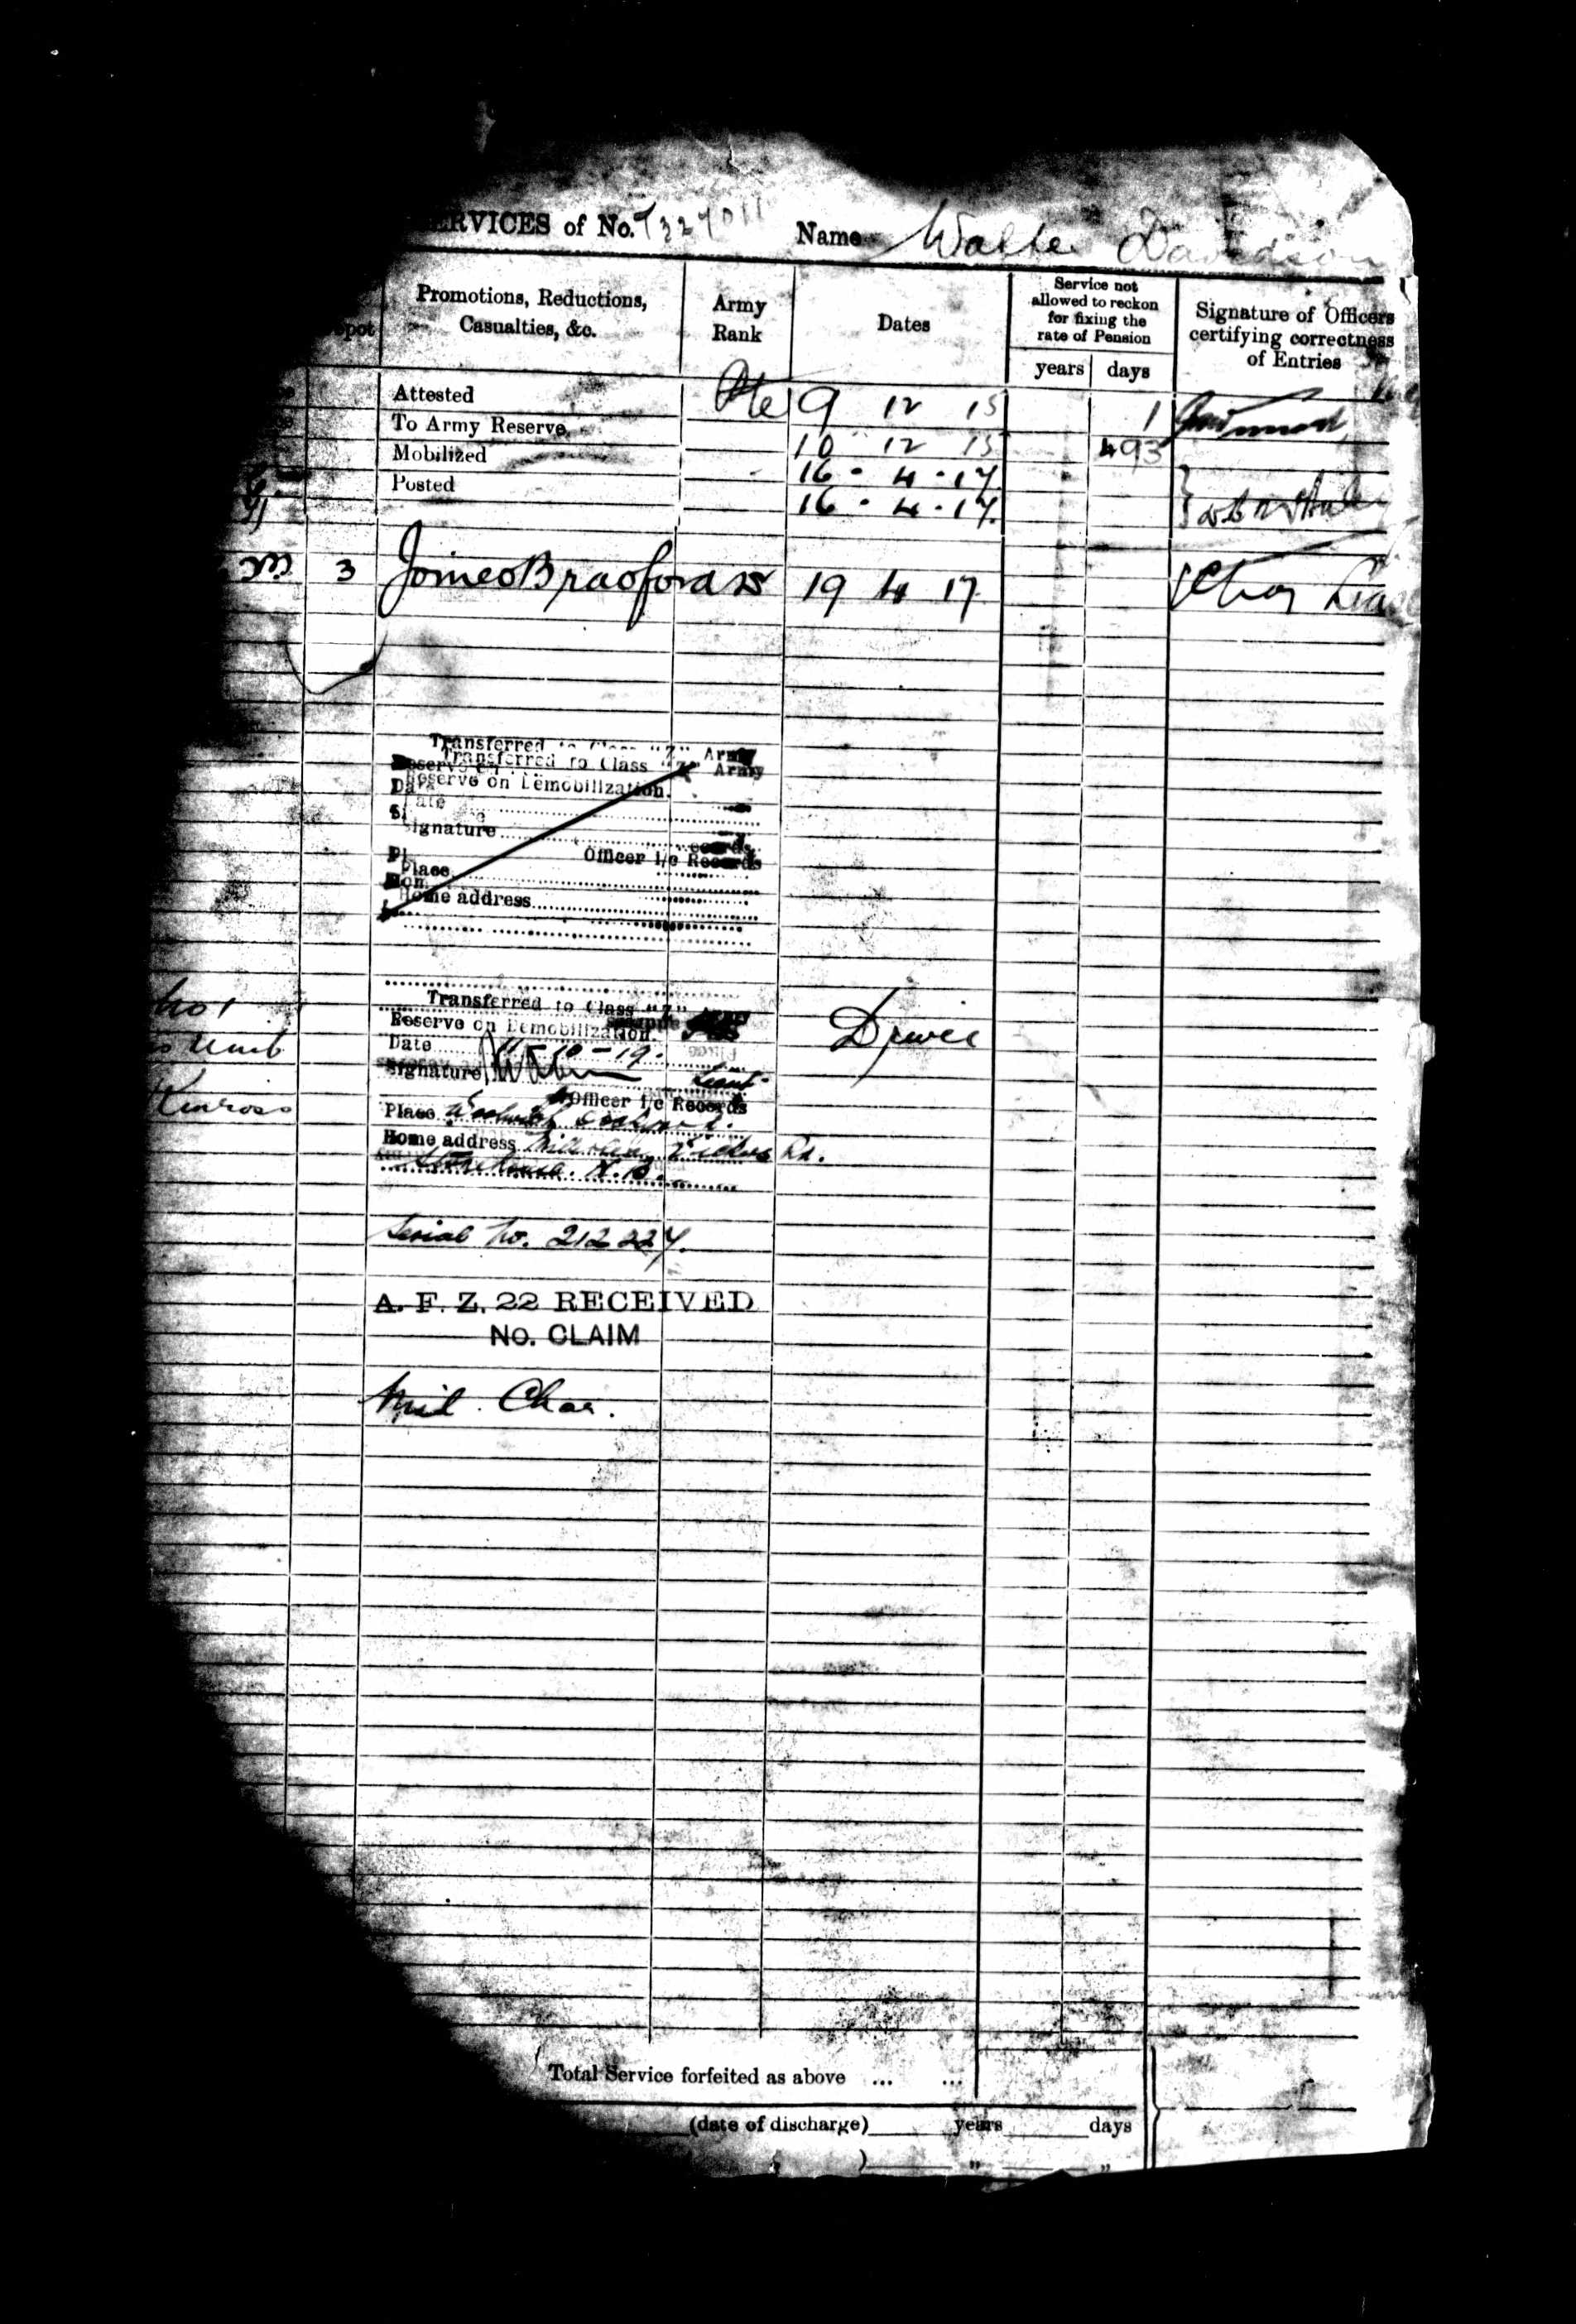 ERVICES of No. T327011 Name Walter Davidson
pot
Promotions, Reductions, Casualties, &c.
Army Rank
Dates
Service not allowed to reckon for fixing the rate of Pension
years days
Signature of Officers certifying correctness of Entries
Attested Pte 9 12 15 1
To Army Reserve 10 12 15 493
Mobilized 16 . 4 . 17
Posted 16 . 4 . 17
3 Joined Bradford 19 4 17
Transferred to Class "Z" Army
Transferred to Class "Z" Army
Reserve on Demobilization.
Date
Signature
Officer i/c Records
Place
Home address
Transferred to Class "Z"
Reserve on Demobilization.
Driver
Date 11-10-19.
Unit
Signature Lieut
Officer i/c Records
Kinross
Place Woolwich Dockyard.
Home address Rd.
N.B.
Serial No. 212227.
A. F. Z. 22 RECEIVED
NO. CLAIM
Mil. Char.
Total Service forfeited as above ... ...
(date of discharge) years days
) " "